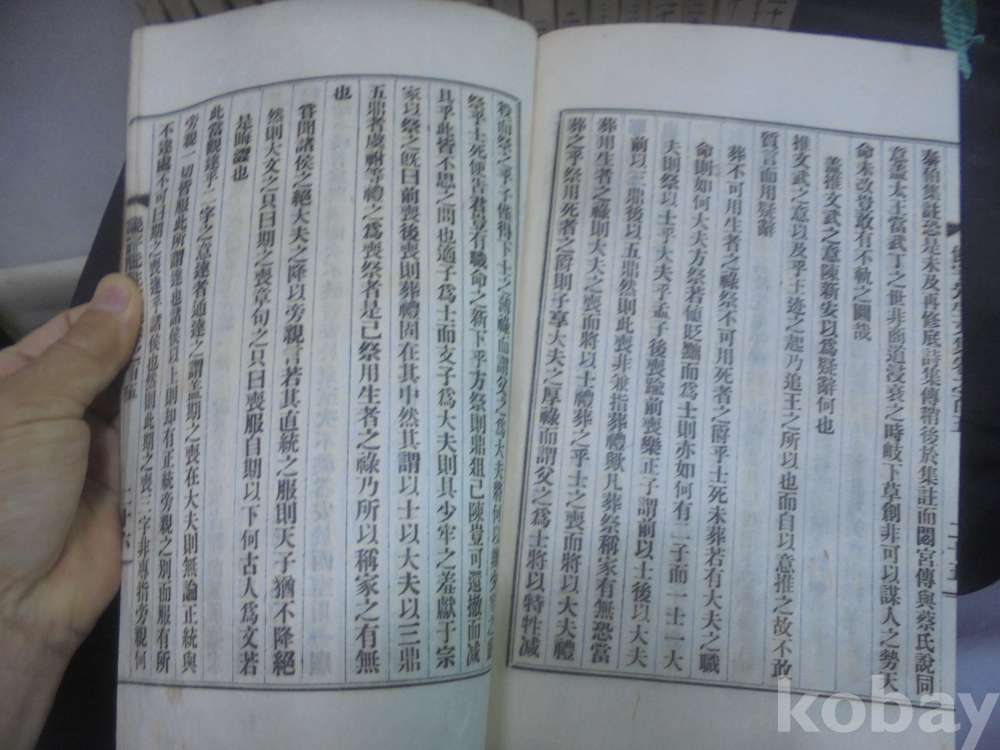 泰伯集註恐是未及再修底詩集傳謂後於集註而閟宮傳與蔡氏說同
意蓋太王當武丁之世非商道浸衰之時岐下草創非可以謀人之勢天
命未改豈敢有不軌之圖哉
蓋推文武之意陳新安以爲疑辭何也
推文武之意以及乎王迹之起乃追王之所以也而自以意推之故不敢
質言而用疑辭
葬不可用生者之祿祭不可用死者之爵乎士死未葬若有大夫之職
命則如何大夫方祭若値貶黜而爲士則亦如何有二子而一士一大
夫則祭以士乎大夫乎孟子後喪踰前喪樂正子謂前以士後以大夫
前以三鼎後以五鼎然則此喪非兼指葬禮歟凡葬祭稱家有無恐當
葬用生者之祿則大夫之喪而將以士禮葬之乎士之喪而將以大夫禮
葬之乎祭用死者之爵則子享大夫之厚祿而謂父之爲士將以特牲减
殺而祭之乎子僅得下士之薄祿而謂父之爲大夫將何以
祭乎士死便告君豈有職命之新下乎方祭則鼎俎已陳豈可還撤而减
具乎此皆不思之問也適子爲士而支子爲大夫則具少牢之羞獻于宗
家以祭之旣曰前喪後喪則葬禮固在其中然其謂以士以大夫以三鼎
五鼎者虞祔等禮之爲喪祭者是已祭用生者之祿乃所以稱家之有無
也
甞聞諸侯之絕大夫之降以旁親言若其直統之服則天子猶不降絕
然則大文之只曰期之喪章句之只曰喪服自期以下何古人爲文若
是晦澁也
此當觀達乎二字之意達者通達之謂盖期之喪在大夫則無論正統與
旁親一切皆服此所謂達也諸侯以上則却有正統旁親之別而服有所
不達處不可曰期之喪達乎諸侯也然則此期之喪二字非專指旁親何
二十五
二十六
kobay